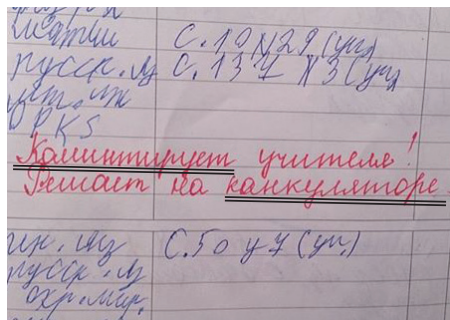 матем С. 10 N 29 (уч)
русск. яз С. 137 N 3 (уч)
ОРКS
Коминтирует учителя!
Решает на канкуляторе
ин. яз С. 50 у 7 (уч.)
русск. яз
окр. мир.